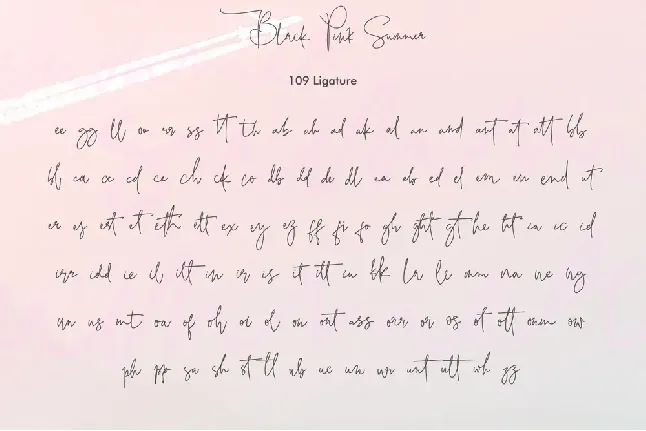 Black Pink Summer
109 Ligature
ee gg ll oo rr ss tt th ab ah ad ak al an and ant at att bb
bl ca cc cd ce ch ck co db dd de dl ea eb ed el em en end et
er es est et eth ett ex ey ez ff fi fo gh ght gt he ht ia ic id
irr idd ie il ilt in ir is it itt iu kk la le mm na ne ng
nn ns nt oa of oh oi ol on ont oss orr or os ot ott omm ow
ph pp sa sh st tl ub uc un ur unt utt wh zz